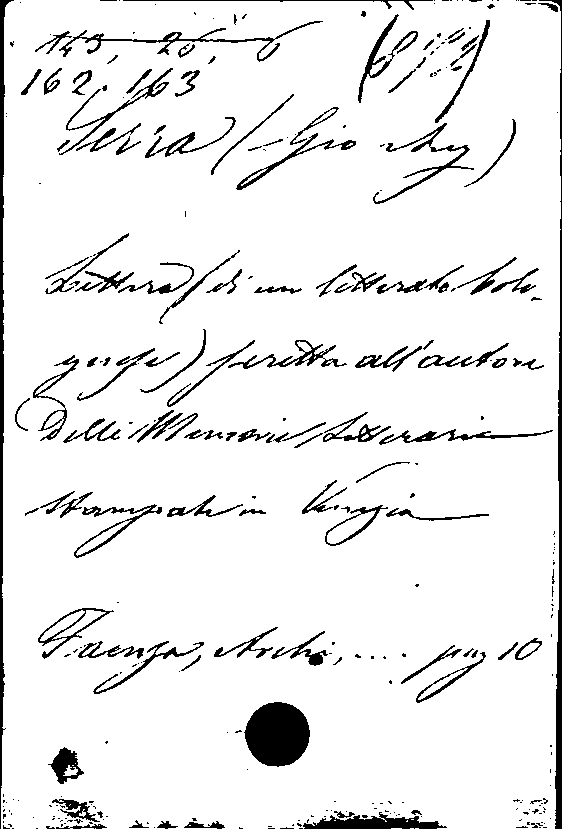 143, 26, 6
162, 163 (812)
Serra (Gio Ang)
Lettera (di un letterato bolo-
gnese) scritta all'autore
Delle Memorie Letterarie
stampate in Venezia
Faenza, Archi, .... pag 10